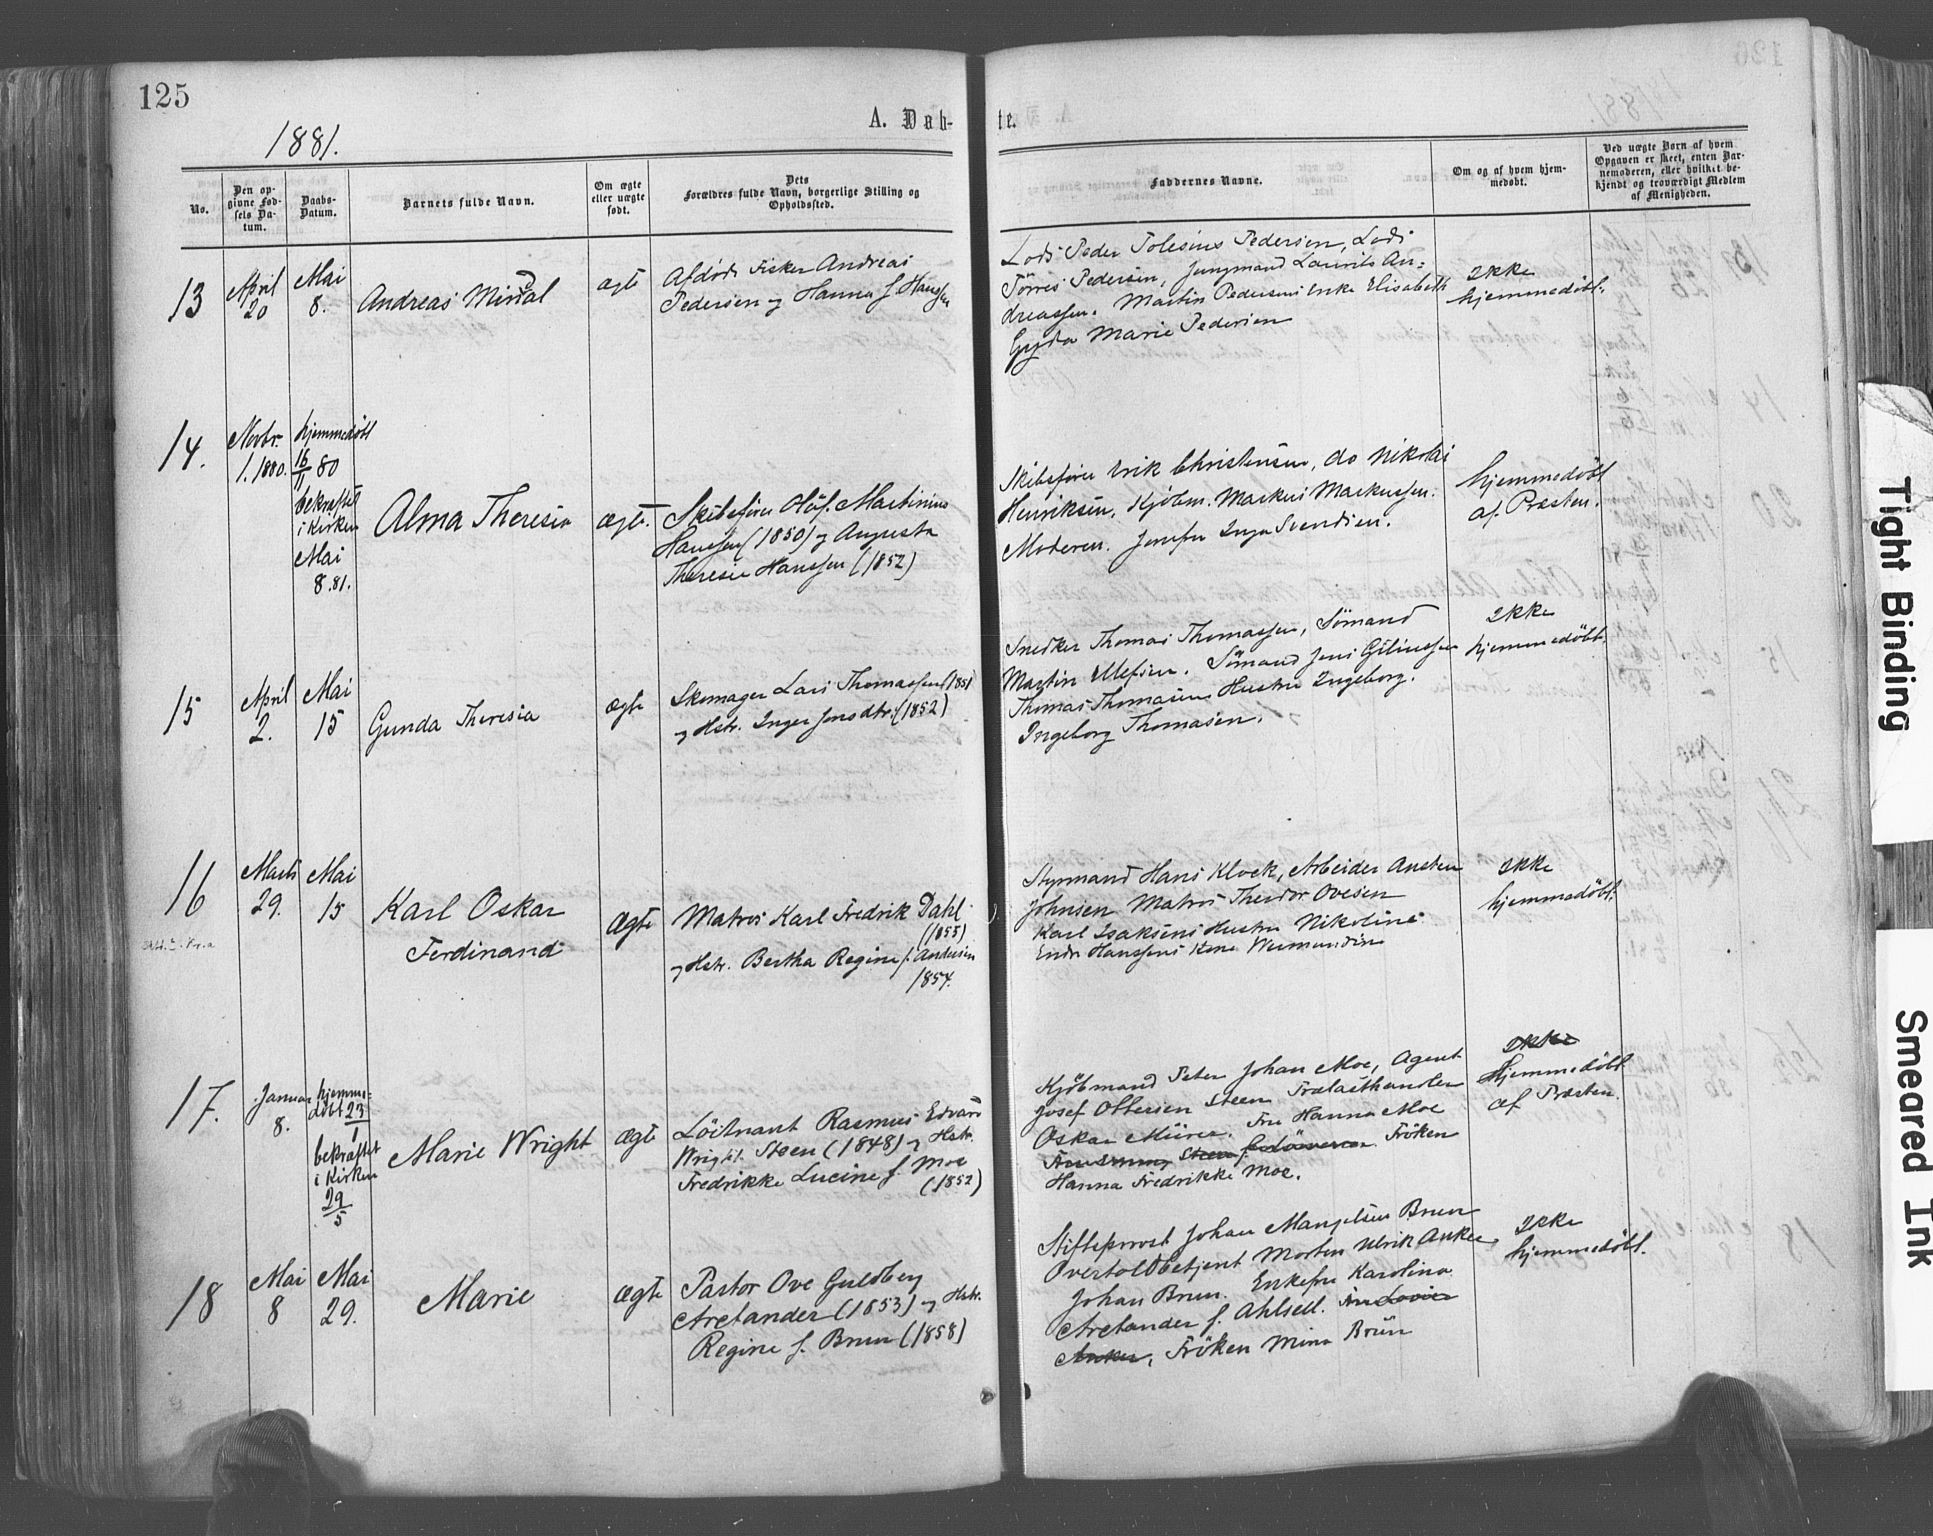 125
1881.
A. Døb-
te.
No.
Den opgivne Fødsels Datum.
Daabs-Datum.
Barnets fulde Navn.
Om ægte eller uægte født.
Dets Forældres fulde Navn, borgerlige Stilling og Opholdssted.
Faddernes Navne.
Om og af hvem hjemmedøbt.
Ved uægte Børn af hvem Opgaven er skeet, enten Barnemoderen, eller hvilket bekjendt og troværdigt Medlem af Menigheden.
13
April 20
Mai 8.
Andreas
ægte
Afdød Fisker Andreas
Pedersen og Hanna f. Hanssen
Lods Peder Tolesius Pedersen, Lods
Tørres Pedersen, Jungmand Laurits An=
dreassen. Martin Pedersens Enke Elisabeth
Gyda Marie Pedersen
Ikke
hjemmedøbt.
14.
Novbr.
1. 1880.
hjemmedøbt
16/11 80
bekræftet
i Kirken
Mai
8. 81.
Alma Theresia
ægte.
Skibsfører Oluf Martinius
Hanssen (1850) og Augusta
Theresie Hanssen (1852)
Skibsfører Erik Christensen, do Nikolai
Henriksen, Kjøbm. Markus Markussen.
Moderen. Jomfru Inga Svendsen.
hjemmedøbt
af Præsten.
15
April
2.
Mai
15
Gunda Theresia
ægte
Skomager Lars Thomassen (1851
og Hstr. Inger Jensdtr. (1852)
Snedker Thomas Thomassen, Sømand
Martin Ellefsen. Sømand Jens
Thomas Thomasens Hustru Ingeborg.
Ingeborg Thomasen.
Ikke
hjemmedøbt.
16
Marts
29.
Mai
15
Karl Oskar
Ferdinand
ægte
Matros Karl Fredrik Dahl
(1855)
og Hstr. Bertha Regine f. Andersen
1854.
Styrmand Hans Klock, Arbeider Ansten
Johnsen Matros Theodor Ovesen
Karl Isaksens Hustru Nikoline
Endr. Hanssens Kone
Ikke
hjemmedøbt.
17.
Januar
8.
hjemme-
døbt 23/1
bekræftet
i Kirken
29/5
Marie Wright
ægte
Löitnant Rasmus Edvard
Wright Steen (1848) og Hstr.
Fredrikke Lucine f. Moe
(1852)
Kjøbmand Peter Johan Moe, Agent
Josef Ottersen Steen Trælasthandler
Oskar Mürer. Fru Hanna Moe
Steen Fröken
Hanna Fredrikke Moe.
Ikke
Hjemmedøbt
af Præsten.
18
Mai
8
Mai
29.
Marie
ægte
Pastor Ove Guldberg
Arctander (1853) og Hstr.
Regine f. Brun (1858)
Stiftsprovst Johan Mangelsen Brun
Overtoldbetjent Morten Ulrik Anker
Johan Brun. Enkefru Karolina
Arctander f. Ahlsell.
Anker, Fröken Mina Brün
Ikke
hjemmedøbt.
Tight Binding
Smeared Ink